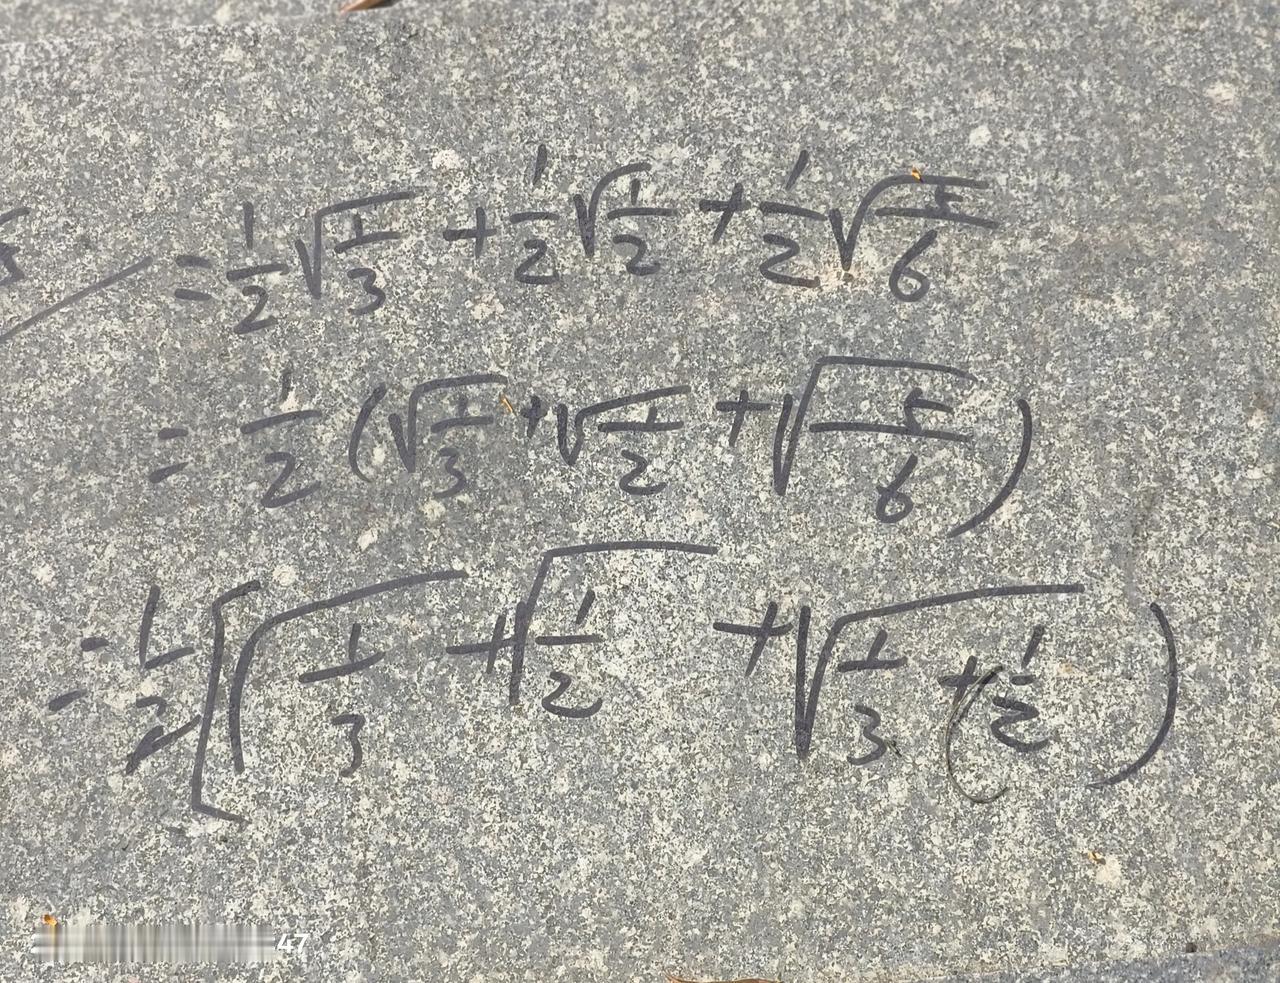 5 = 1/2 √(1/3) + 1/2 √(1/2) + 1/2 √(5/6)
= 1/2 (√(1/3) + √(1/2) + √(5/6))
= 1/2 [√(1/3) + √(1/2) + √(1/3 + (1/2))
47